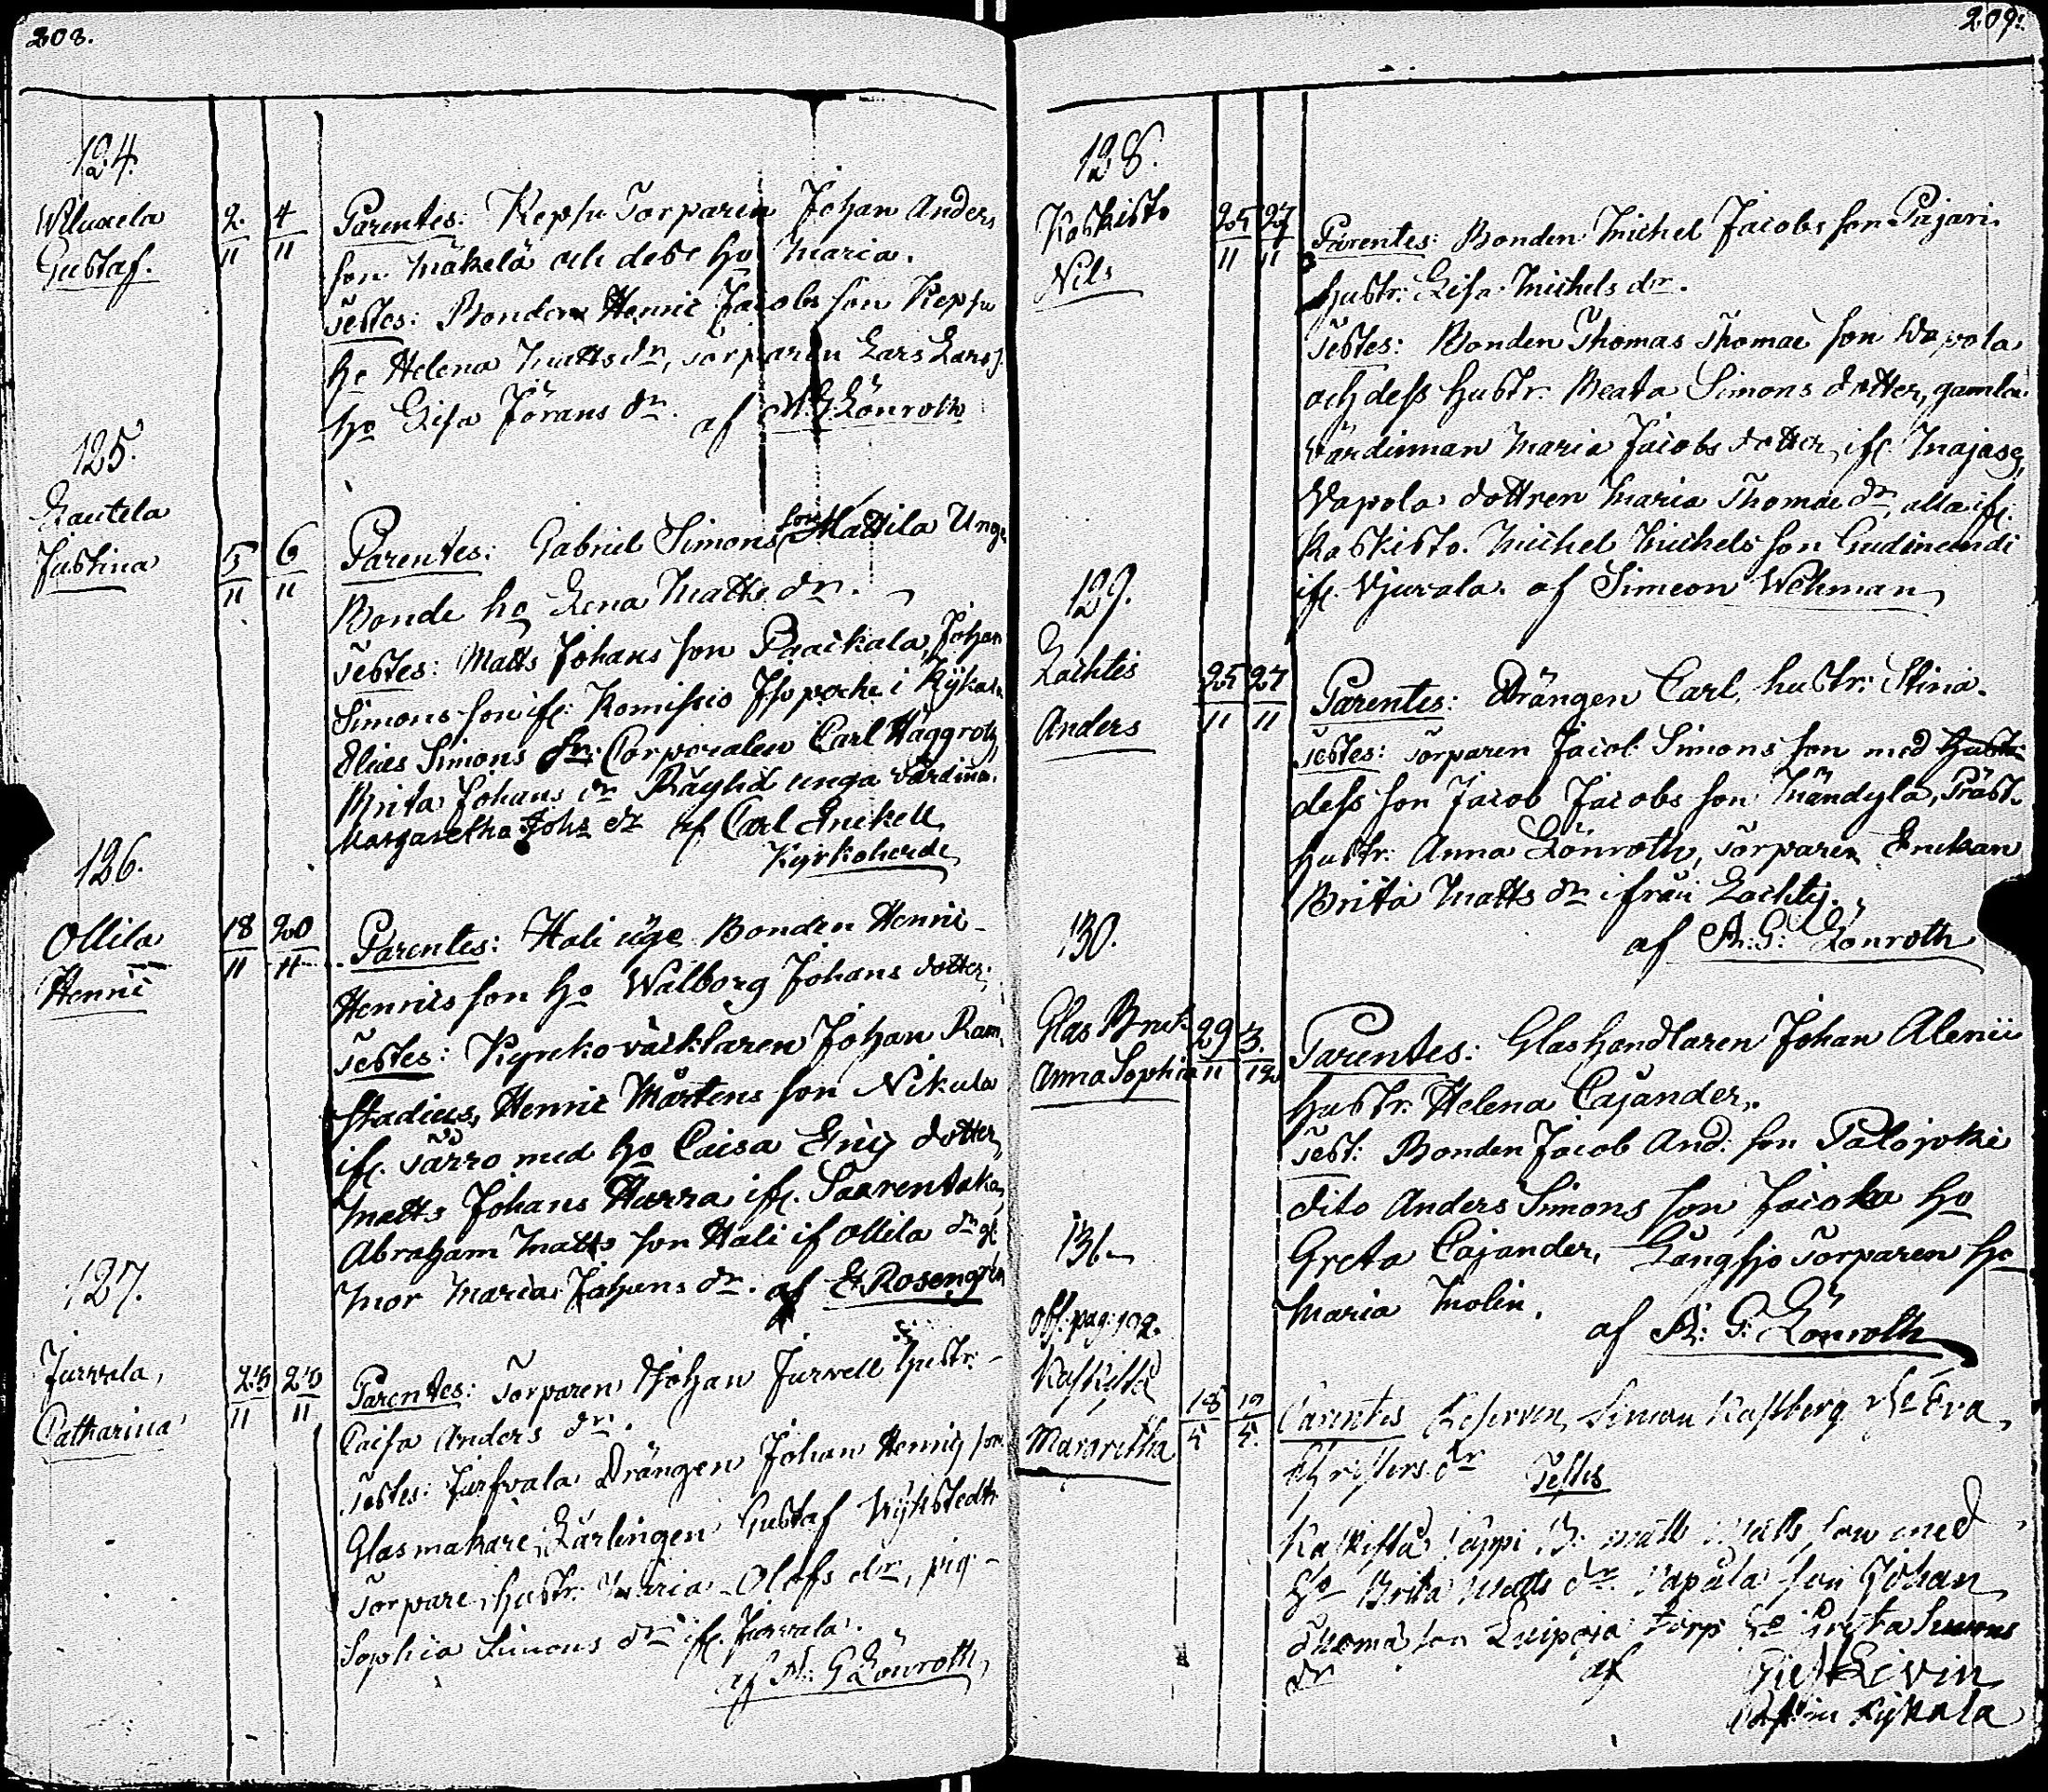 208.
124.
Wiluxela
Gustaf.
2. 4
11 11
Parentes: Kepsu Torparen Johan Anders
son Mäkelä och dess ho Maria.
Testes: Bonden Henric Jacobs son Kepsu
ho Helena Mattsdr, Torparen Lars Larss.
ho Lisa Jörans dr. af A. G. Lönroth
125.
Lautela
Justina
5 6
11 11
Parentes: Gabriel Simons son Mattila Unge
Bonde ho Lena Matts dr.
Testes: Matts Johans son Paaikala, Johan
Simons son ifr. Komissio Isopocki i Kÿkala
Elias Simons dr, Corporalen Carl Häggroth,
Brita Johans dr Räylid unga Värdina.
Margaretha Johs dr af Carl Enckell
Kyrkoherde
126.
Ollila
Henric
18 20
11 11
Parentes: Hali äge Bonden Henric
Henrics son ho Walborg Johans dotter.
Testes: Kyrko väcktaren Johan Ram
stadius, Henric Mårtens son Nikula
ifr. Tarro med ho Caisa Erics dotter,
Matts Johans Harra ifr. Saarentaka,
Abraham Matts son Hali if Ollila dr gl.
mor Maria Johans dr. af E. Rosengren
127.
Jurvala,
Catharina
25 25
11 11
Parentes: Torparen Johan Jurvell Hustr.
Caisa Anders dr.
Testes: Jurfvala Drängen Johan Henrics son
Glasmakare Lärlingen Gustaf Wykstedt
Torpare hustr. Maria Olofs dr, pig
Sophia Simons dr ifr. Jurvala.
af A. G Lönroth
209.
128.
Koskisto
Nils
25 27
11 11
Parentes: Bonden Michel Jacobs son Pajari
hustr: Lisa Michels dr.
Testes: Bonden Thomas Thomae son Wapola
och dess hustr. Beata Simons dotter, gamla
värdinnan Maria Jacobs dotter, ifr. Majasa,
Wapola dottren Maria Thomae dr, alla ifr.
Koskisto. Michel Michels son Gudinendi
ifr. Vjurala. af Simeon Wehman
129.
Lachtis
Anders
25 27
11 11
Parentes: Drängen Carl, hustr: Stina.
Testes: Torparen Jacob Simons son med hustr
dess son Jacob Jacobs son Mändyla, Präst.
hustr. Anna Lönroth, Torparen Enckan
Brita Matts dr ifrån Lachtis.
af A: G: Lönroth
130.
Glas Bruk
Anna Sophia
29 3.
11 12
Parentes: Glashandlaren Johan Alenii
hustr. Helena Cajander.
Test: Bonden Jacob And: son Palojoki
dito Anders Simons son Jaicka ho
Greta Cajander, Långsjo Torparen ho
Maria Molin. af A: G: Lönroth
131
Obs. pag: 192.
Kaskista
Margretha
18 19
5 5.
Parentes Reserven Simon Kastberg ho Eva
Christers dr Testes
Kaskista Säppi B: Matt Matts son med
ho Brita Matts dr. Papula son Johan
Thoma son Luipoja Torp ho Greta Simons
dr af Gust Levin
Past: in Kykala